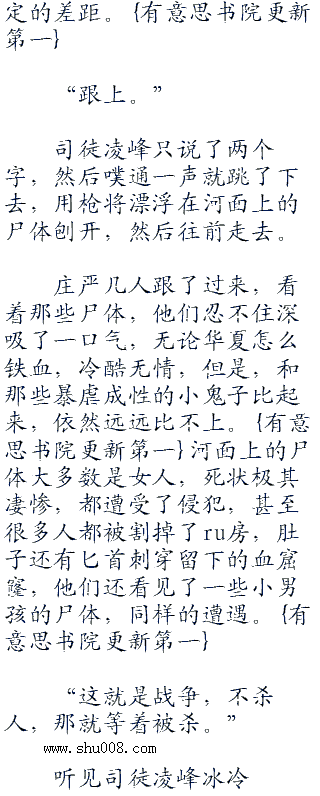 定的差距。{有意思书院更新
第一}
“跟上。”
司徒凌峰只说了两个
字，然后噗通一声就跳了下
去，用枪将漂浮在河面上的
尸体刨开，然后往前走去。
庄严几人跟了过来，看
着那些尸体，他们忍不住深
吸了一口气，无论华夏怎么
铁血，冷酷无情，但是，和
那些暴虐成性的小鬼子比起
来，依然远远比不上。{有意
思书院更新第一}河面上的尸
体大多数是女人，死状极其
凄惨，都遭受了侵犯，甚至
很多人都被割掉了ru房，肚
子还有匕首刺穿留下的血窟
窿，他们还看见了一些小男
孩的尸体，同样的遭遇。{有
意思书院更新第一}
“这就是战争，不杀
人，那就等着被杀。”
www.shu008.com
听见司徒凌峰冰冷